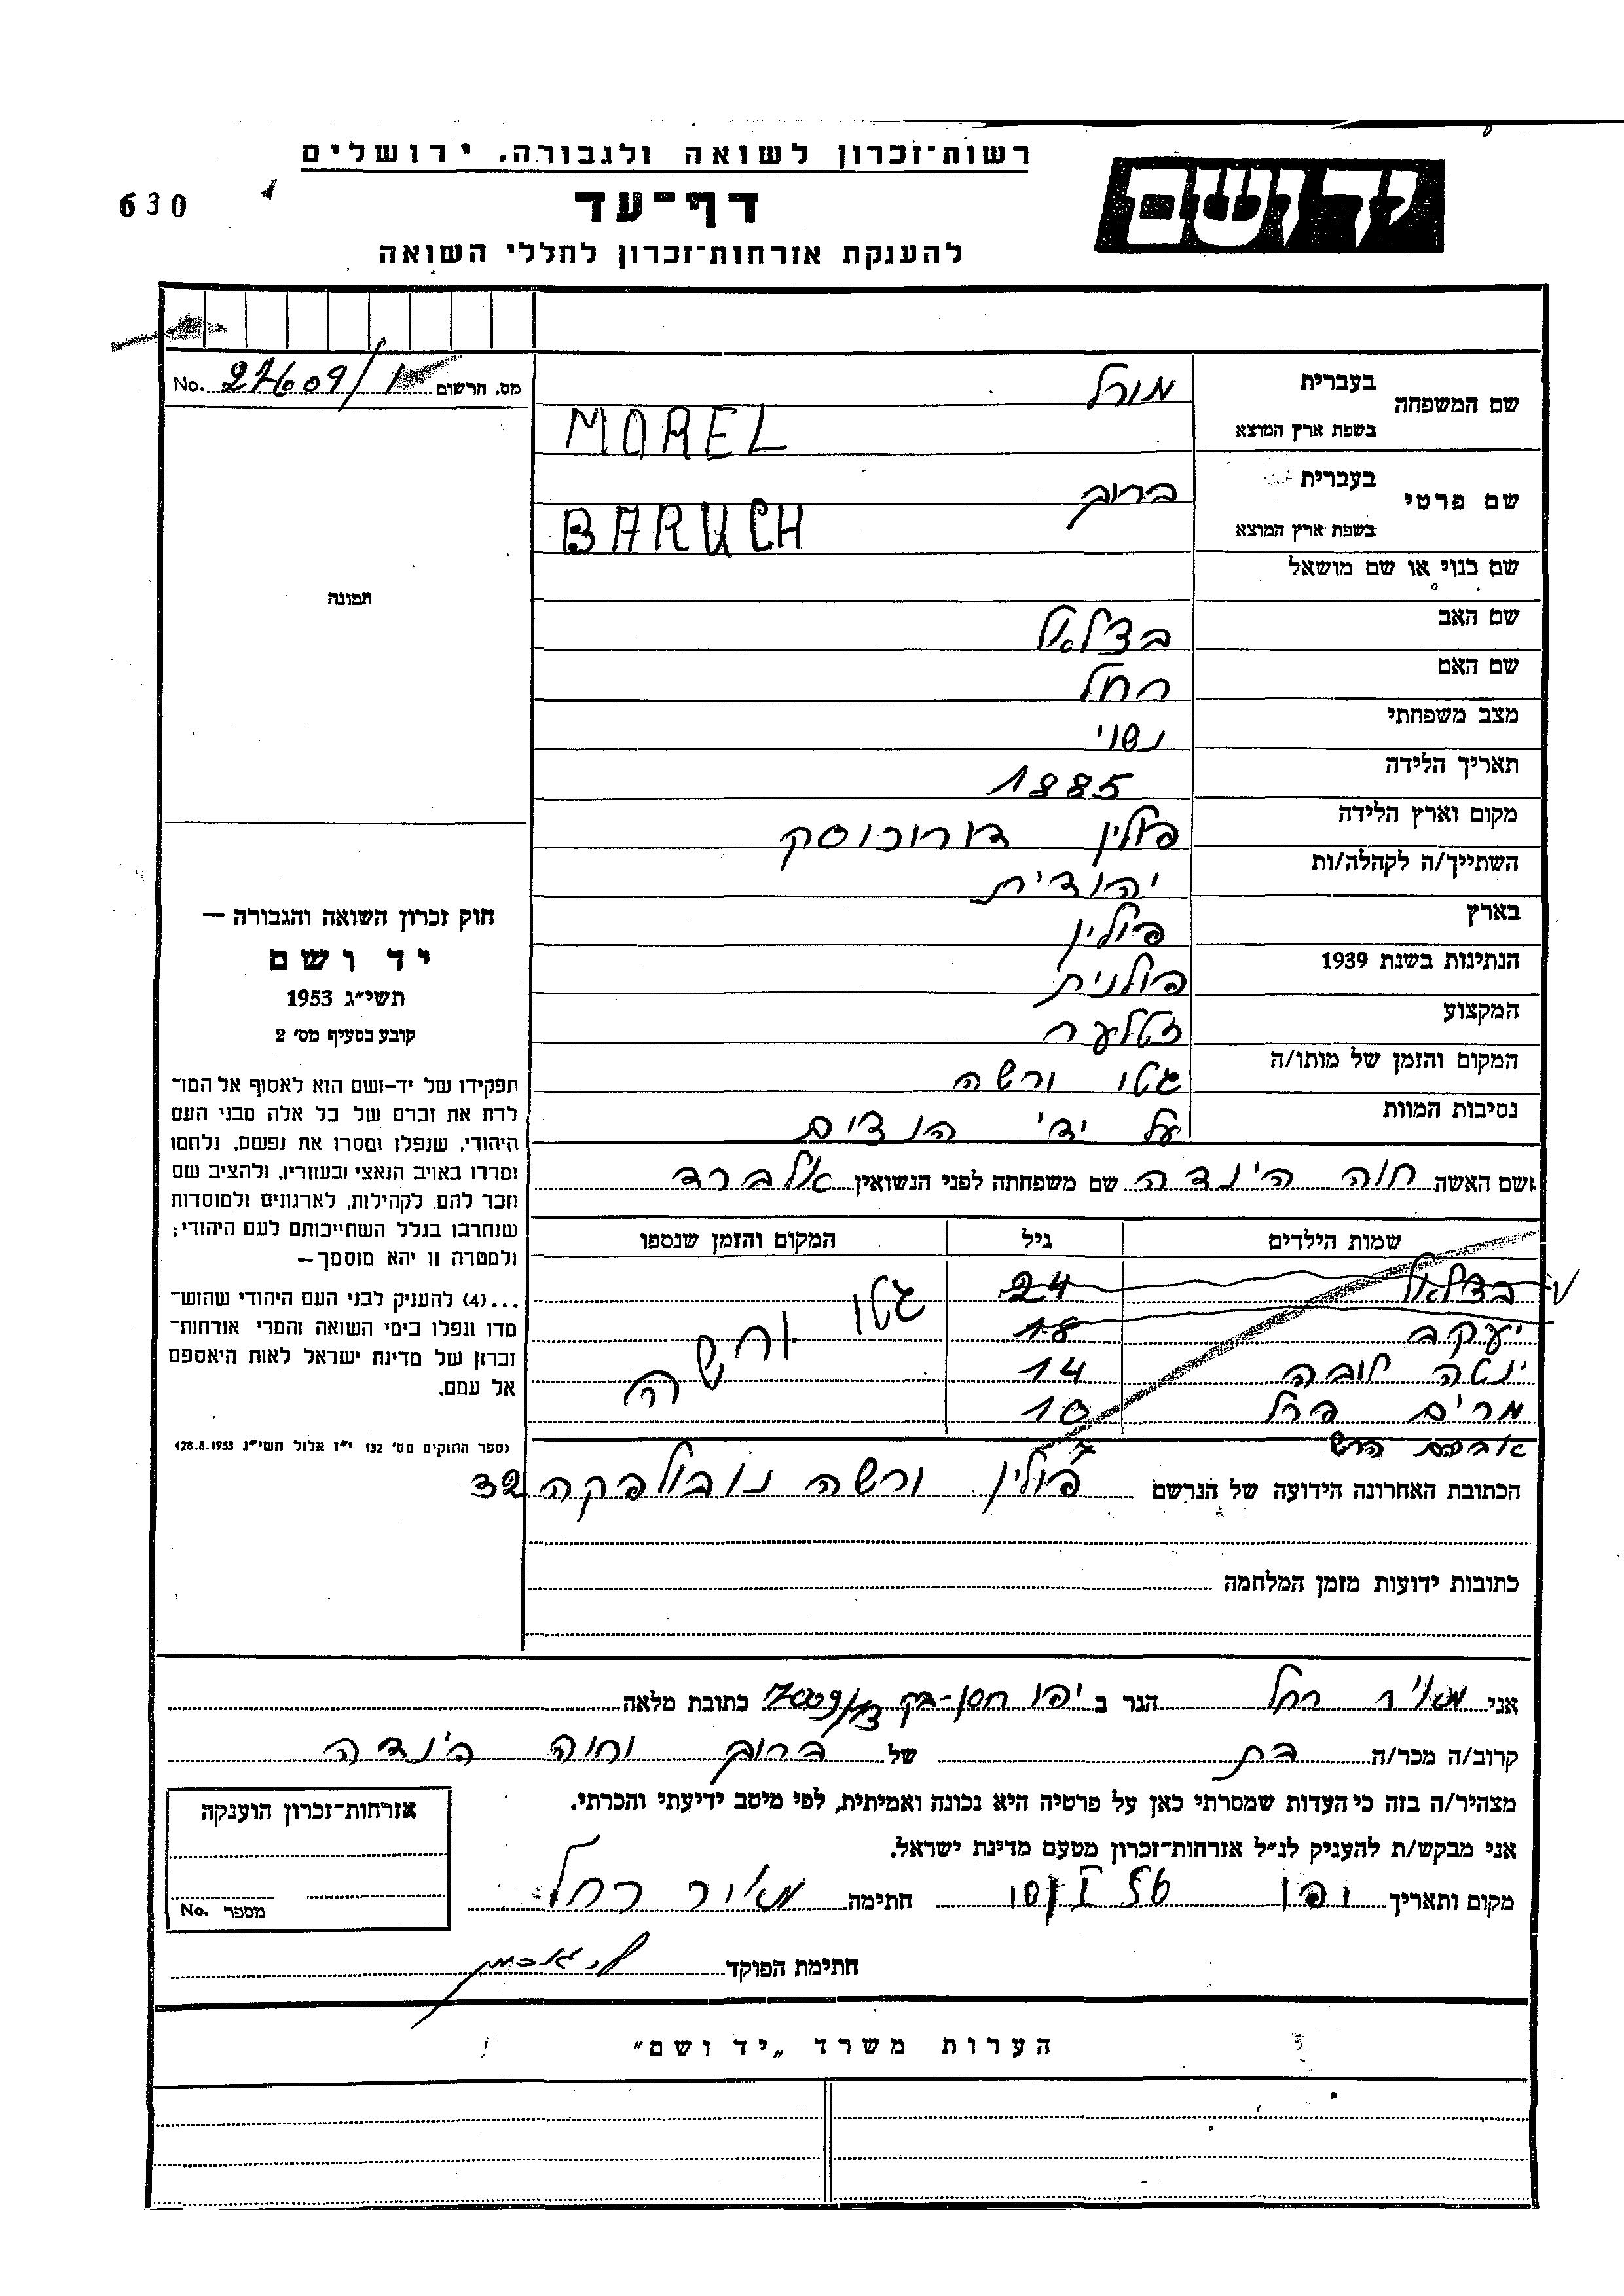 רשות־זכרון לשואה ולגבורה, ירושלים
יד ושם
630
דף־עד
להענקת אזרחות־זכרון לחללי השואה
מס. הרשום 27609/1 No.
שם המשפחה
בעברית מורל
בשפת ארץ המוצא MOREL
שם פרטי
בעברית ברוך
בשפת ארץ המוצא BARUCH
שם כנוי או שם מושאל
שם האב בצלאל
שם האם רחל
מצב משפחתי נשוי
תאריך הלידה 1885
מקום וארץ הלידה פולין
השתייך/ה לקהלה/ות יהודית
בארץ פולין
הנתינות בשנת 1939 פולנית
המקצוע זטלער
המקום והזמן של מותו/ה גטו ורשה
נסיבות המוות על ידי הנצים
שם האשה חוה הינדה שם משפחתה לפני הנשואין אלברד
שמות הילדים גיל המקום והזמן שנספו
בצלאל 24 גטו ורשה
יעקב 18
ינטה לובה 14
מרים פרל 10
אברהם הרש 7
הכתובת האחרונה הידועה של הנרשם פולין ורשה נובולפקה 32
כתובות ידועות מזמן המלחמה
תמונה
חוק זכרון השואה והגבורה —
יד ושם
תשי״ג 1953
קובע בסעיף מס׳ 2
תפקידו של יד-ושם הוא לאסוף אל המו־
לדת את זכרם של כל אלה מבני העם
היהודי, שנפלו ומסרו את נפשם, נלחמו
ומרדו באויב הנאצי ובעוזריו, ולהציב שם
וזכר להם, לקהילות, לארגונים ולמוסדות
שנחרבו בגלל השתייכותם לעם היהודי;
ולמטרה זו יהא מוסמך —
...(4) להענקיק לבני העם היהודי שהוש־
מדו ונפלו בימי השואה והמרי אזרחות־
זכרון של מדינת ישראל לאות היאספם
אל עמם.
(ספר החוקים מס׳ 132 י״ז אלול תשי״ג 28.8.1953)
אני מאיר רחל הגר ב יפו חסן-בק כתובת מלאה
קרוב/ה מכר/ה בת של ברוך וחוה הינדה
מצהיר/ה בזה כי העדות שמסרתי כאן על פרטיה היא נכונה ואמיתית, לפי מיטב ידיעתי והכרתי.
אני מבקש/ת להעניק לנ״ל אזרחות־זכרון מטעם מדינת ישראל.
מקום ותאריך יפו 10/I 56 חתימה מאיר רחל
חתימת הפוקד
אזרחות־זכרון הוענקה
מספר No.
הערות משרד „יד ושם״